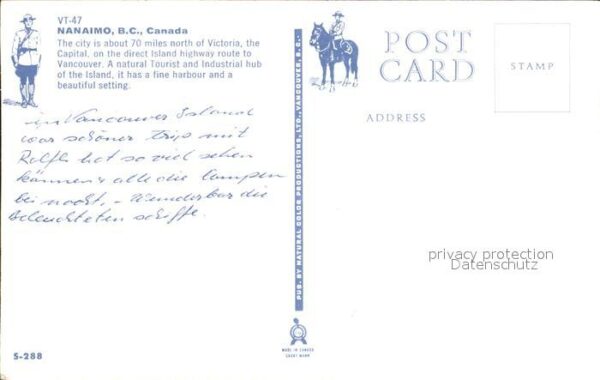 VT-47
NANAIMO, B.C., Canada
The city is about 70 miles north of Victoria, the
Capital, on the direct Island highway route to
Vancouver. A natural Tourist and Industrial hub
of the Island, it has a fine harbour and a
beautiful setting.
in Vancouver Island
war schöner Trip mit
hat so viel sehen
können alle die Lampen
bei nacht, - Wunderbar die
beleuchteten schiffe.
S-288
PUB. BY NATURAL COLOR PRODUCTIONS, LTD., VANCOUVER, B.C.
MADE IN CANADA
POST
CARD
STAMP
ADDRESS
privacy protection
Datenschutz